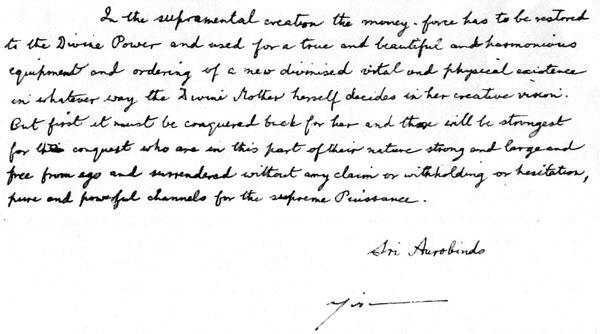 In the supramental creation the money-force has to be restored
to the Divine Power and used for a true and beautiful and harmonious
equipment and ordering of a new divinised vital and physical existence
in whatever way the Divine Mother herself decides in her creative vision.
But first it must be conquered back for her and those will be strongest
for the conquest who are in this part of their nature strong and large and
free from ego and surrendered without any claim or withholding or hesitation,
pure and powerful channels for the supreme Puissance.
Sri Aurobindo